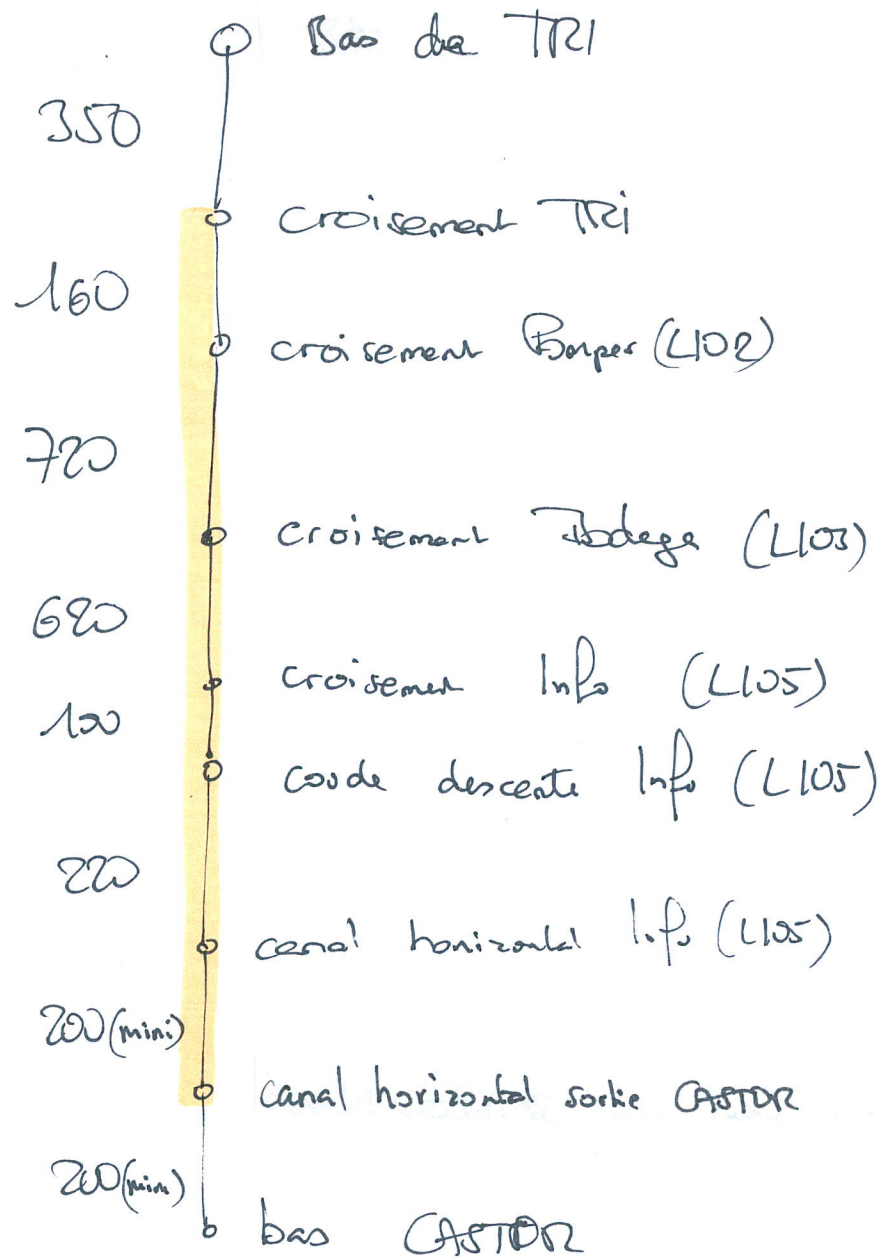 Bas de TRI
350
croisement TRI
160
croisement (L102)
720
croisement Bodega (L103)
680
croisement Info (L105)
100
coude descente Info (L105)
220
canal horizontal Info (L105)
200 (mini)
canal horizontal sortie CASTOR
200 (mini)
bas CASTOR